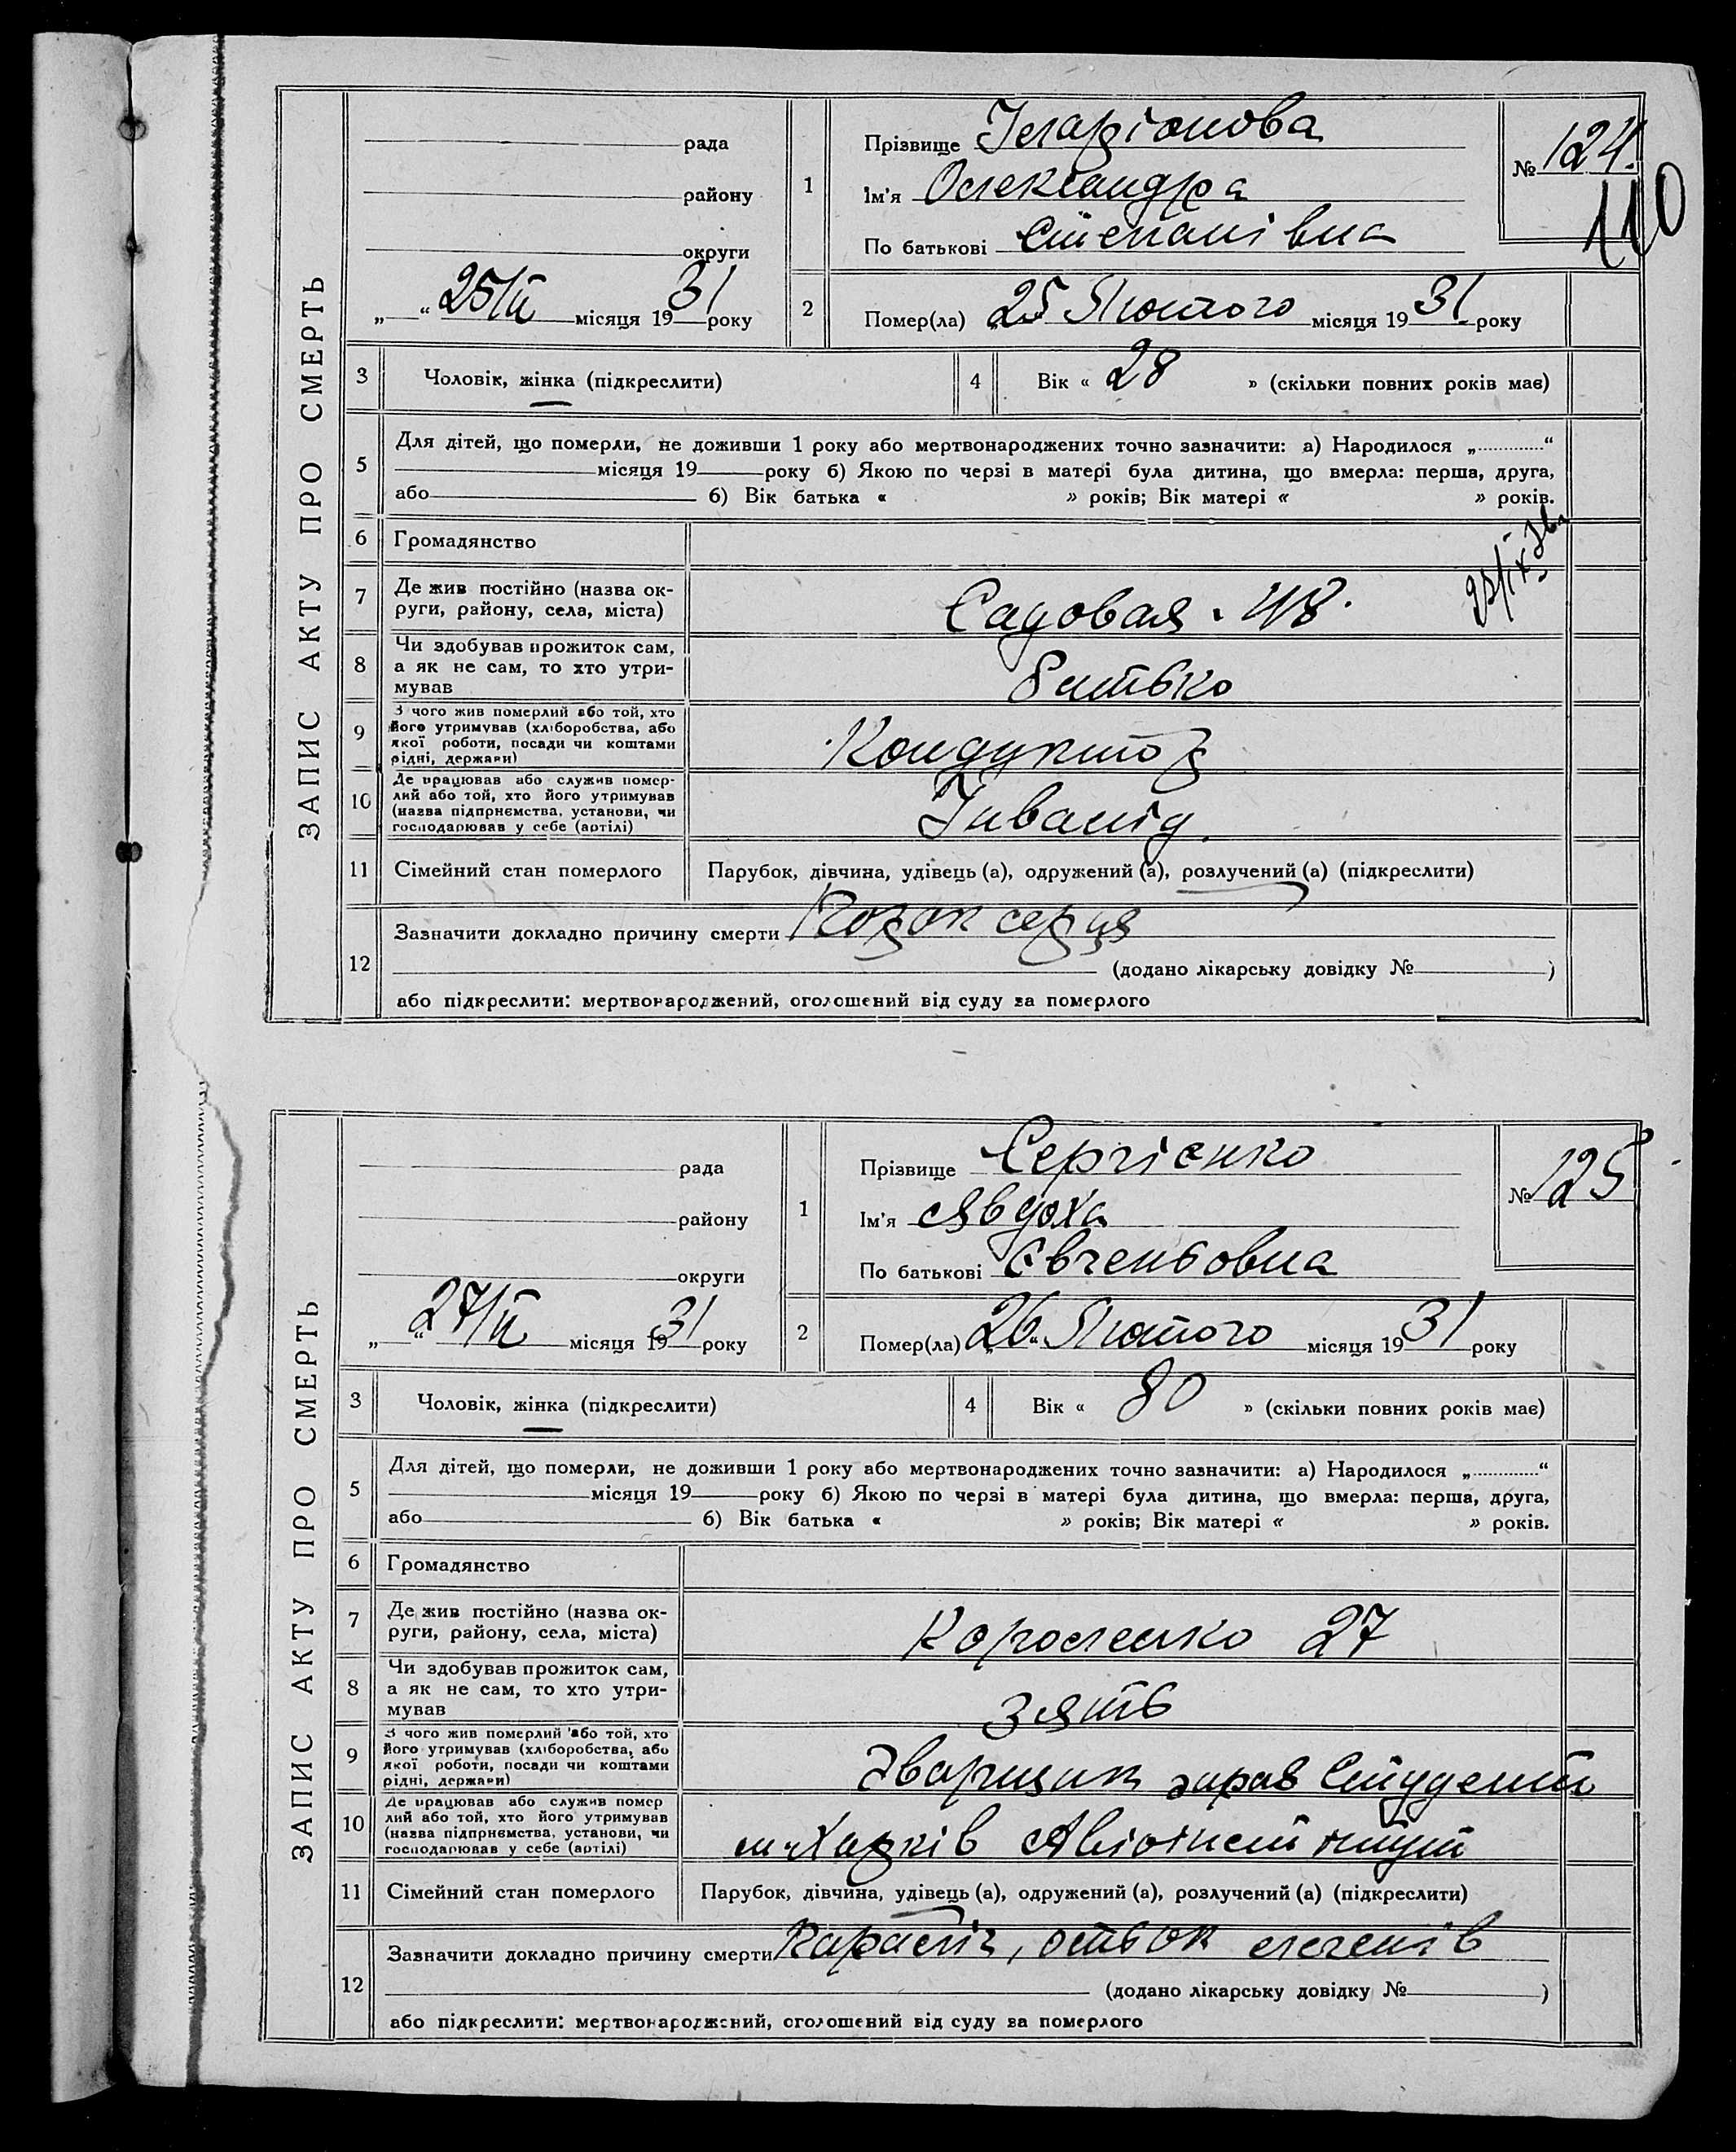 ЗАПИС АКТУ ПРО СМЕРТЬ
рада
району
округи
„ “ 25/II місяця 1931 року
1
Прізвище Іларіонова
Ім'я Олександра
По батькові Степанівна
№ 124.
110
2
Помер(ла) 25 Лютого місяця 1931 року
3 Чоловік, жінка (підкреслити)
4 Вік « 28 » (скільки повних років має)
5
Для дітей, що померли, не доживши 1 року або мертвонароджених точно зазначити: а) Народилося „ “
місяця 19 року б) Якою по черзі в матері була дитина, що вмерла: перша, друга,
або б) Вік батька « » років; Вік матері « » років.
6 Громадянство
7 Де жив постійно (назва ок-
руги, району, села, міста)
Садовая . 48.
8 Чи здобував прожиток сам,
а як не сам, то хто утри-
мував
батько
9 З чого жив померлий або той, хто
його утримував (хліборобства, або
якої роботи, посади чи коштами
рідні, держави)
Кондуктор
10 Де працював або служив помер-
лий або той, хто його утримував
(назва підприємства, установи, чи
господарював у себе (артілі)
Інвалід.
11 Сімейний стан померлого
Парубок, дівчина, удівець (а), одружений (а), розлучений (а) (підкреслити)
12
Зазначити докладно причину смерти Порок серця
(додано лікарську довідку № )
або підкреслити: мертвонароджений, оголошений від суду за померлого
ЗАПИС АКТУ ПРО СМЕРТЬ
рада
району
округи
„ “ 27/II місяця 1931 року
1
Прізвище Сергієнко
Ім'я Явдоха
По батькові Євгеньовна
№ 125
2
Помер(ла) „26“ Лютого місяця 1931 року
3 Чоловік, жінка (підкреслити)
4 Вік « 80 » (скільки повних років має)
5
Для дітей, що померли, не доживши 1 року або мертвонароджених точно зазначити: а) Народилося „ “
місяця 19 року б) Якою по черзі в матері була дитина, що вмерла: перша, друга,
або б) Вік батька « » років; Вік матері « » років.
6 Громадянство
7 Де жив постійно (назва ок-
руги, району, села, міста)
Короленко 27
8 Чи здобував прожиток сам,
а як не сам, то хто утри-
мував
зять
9 З чого жив померлий або той, хто
його утримував (хліборобства, або
якої роботи, посади чи коштами
рідні, держави)
зараз Студент
10 Де працював або служив помер
лий або той, хто його утримував
(назва підприємства, установи, чи
господарював у себе (артілі)
м. Харків Авіоінститут
11 Сімейний стан померлого
Парубок, дівчина, удівець (а), одружений (а), розлучений (а) (підкреслити)
12
Зазначити докладно причину смерти легенів
(додано лікарську довідку № )
або підкреслити: мертвонароджений, оголошений від суду за померлого